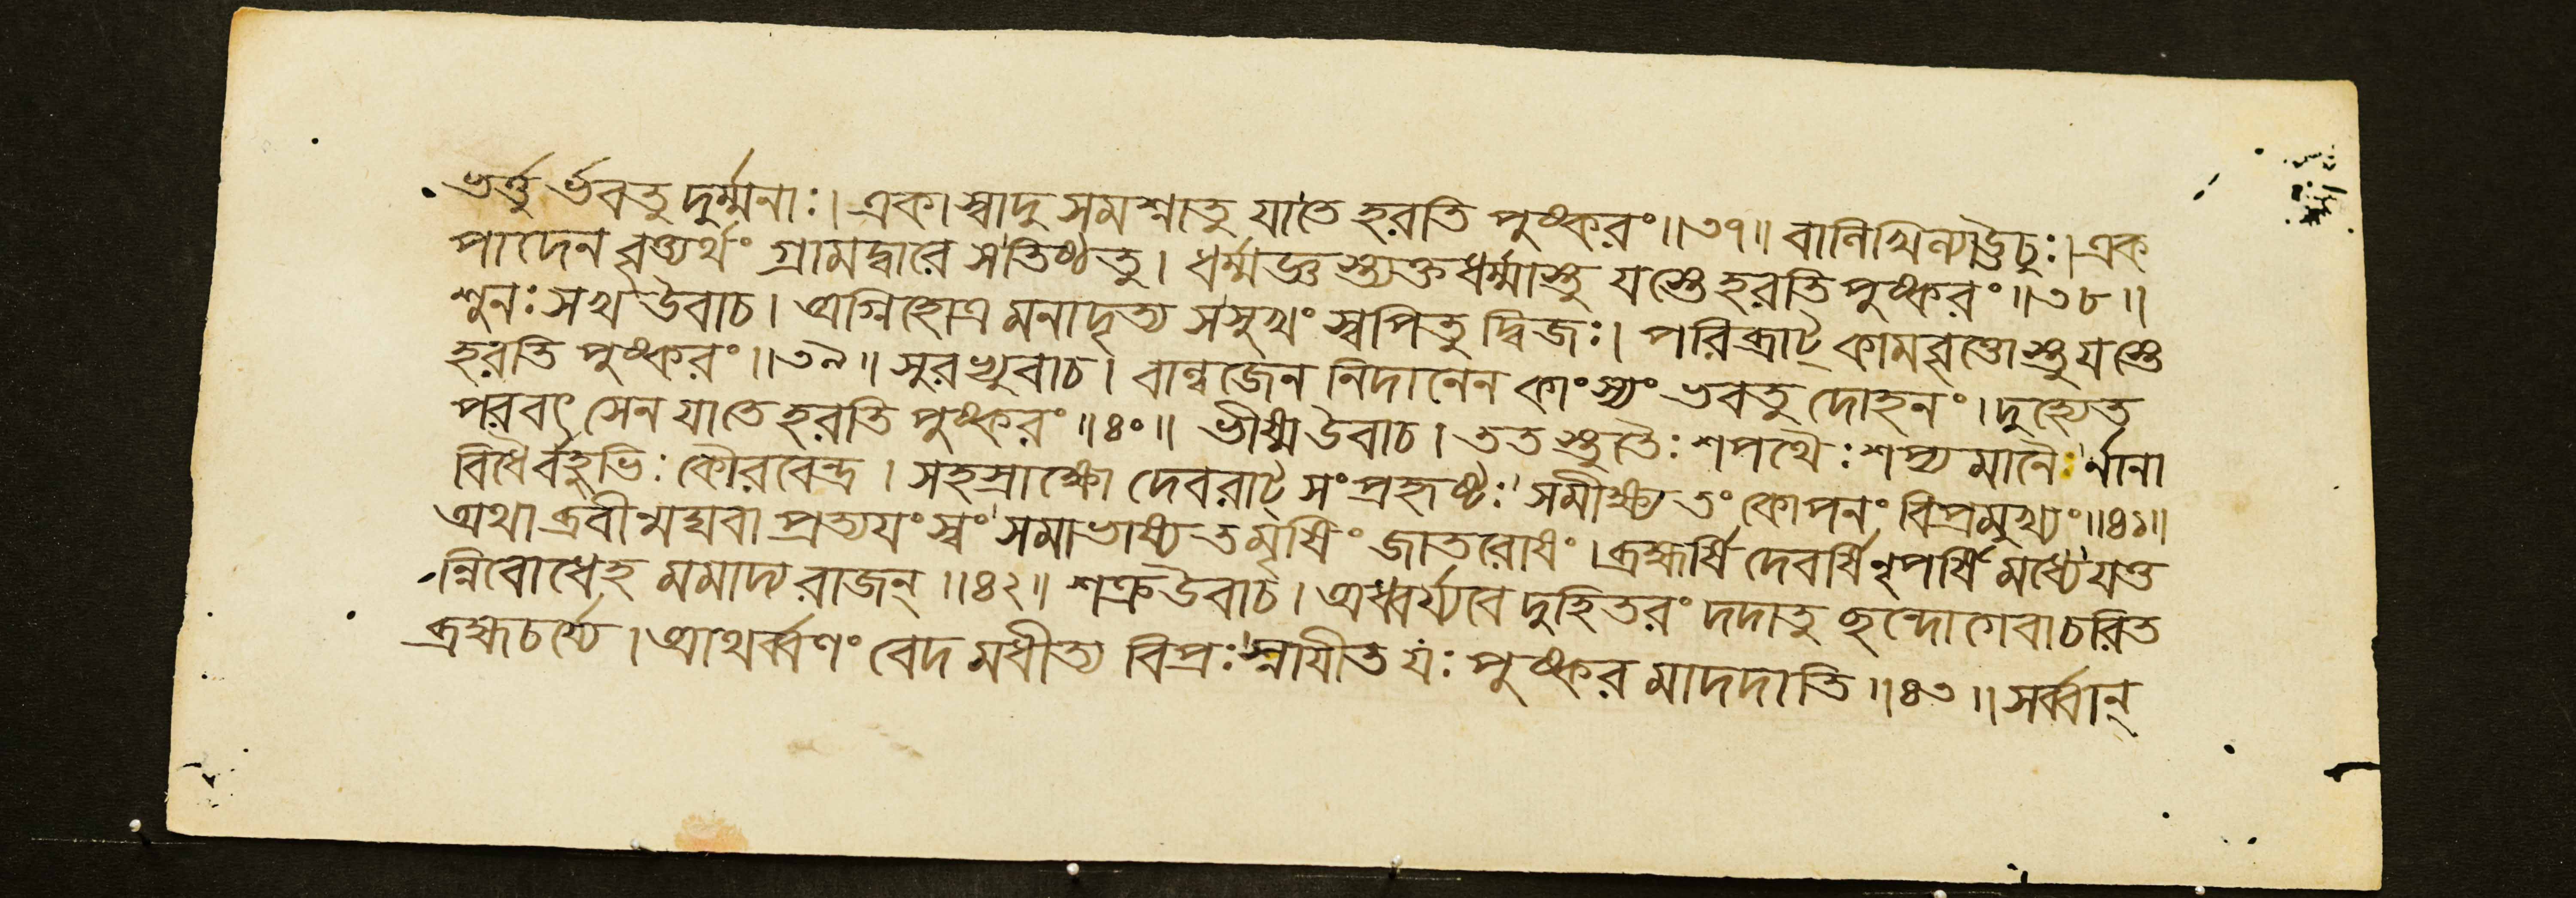 ভর্ত্তু র্ভবতু দুর্ম্মনাঃ। একা স্বাদু সমশ্নাতু যা তে হরতি পুষ্করং॥৩৭॥ বালিখিল্যা ঊচুঃ। এক
পাদেন বৃত্ত্যর্থং গ্রামদ্বারে স তিষ্ঠতু। ধর্ম্মজ্ঞস্ত্যক্তধর্ম্মাস্তু যস্তে হরতি পুষ্করং॥৩৮॥
শুনঃসখ উবাচ। অগ্নিহোত্র মনাদৃত্য স সুখং স্বপিতু দ্বিজঃ। পরিব্রাট্ কামবৃত্তোস্তু যস্তে
হরতি পুষ্করং॥৩৯॥ সুরভ্যুবাচ। বাল্বজেন নিদানেন কাংস্যং ভবতু দোহনং। দুহ্যেত
পরবৎসেন যা তে হরতি পুষ্করং॥৪০॥ ভীষ্ম উবাচ। ততস্তু তৈঃ শপথৈঃ শপ্যমানৈঃ র্নানা
বিধৈর্বহুভিঃ কৌরবেন্দ্র। সহস্রাক্ষো দেবরাট্ সংপ্রহৃষ্টঃ সমীক্ষ্য তং কোপনং বিপ্রমুখ্যং॥৪১॥
অথাব্রবীন্মঘবা প্রত্যযং স্বং সমাভাষ্য তমৃষিং জাতরোষং। ব্রহ্মর্ষি দেবর্ষি নৃপর্ষি মধ্যে যত্ত
ন্নিবোধেহ মমাদ্য রাজন্॥৪২॥ শক্র উবাচ। অধ্বর্য্যবে দুহিতরং দদাতু ছন্দোগে বাচরিত
ব্রহ্মচর্য্যে। আথর্ব্বণং বেদ মধীত্য বিপ্রঃ স্নাযীত যঃ পুষ্কর মাদদাতি॥৪৩॥ সর্ব্বান্